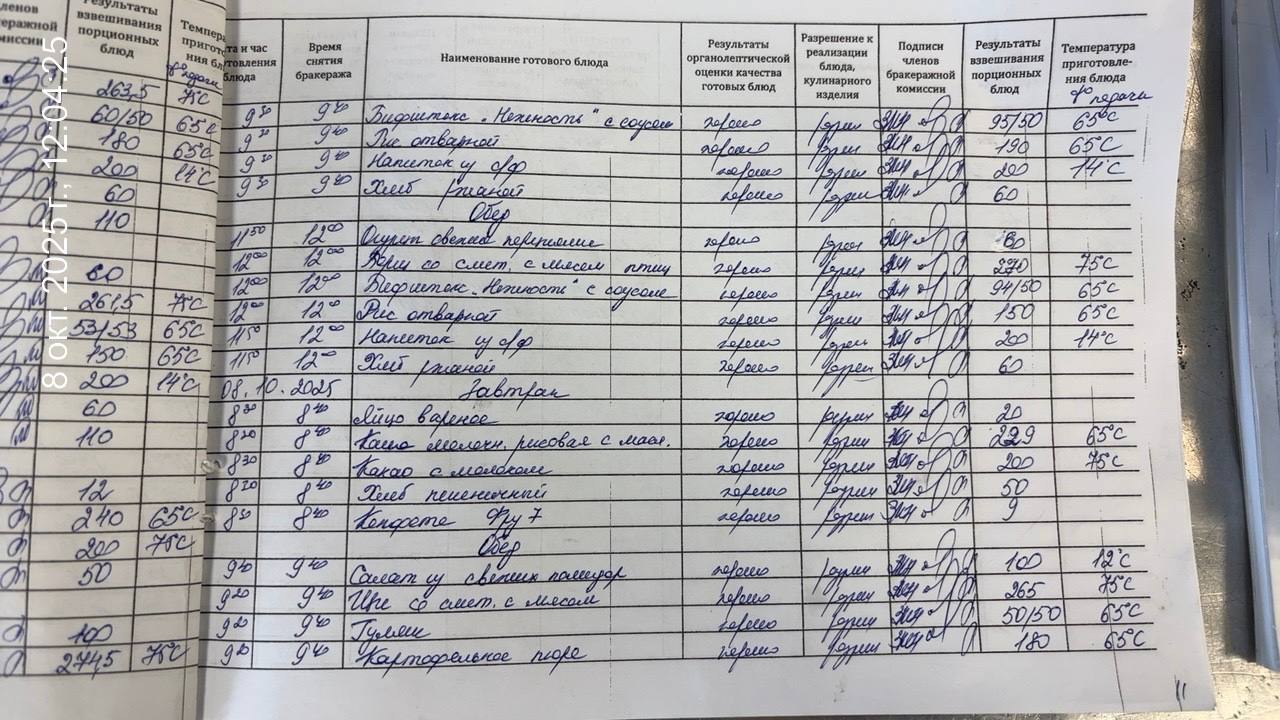 8 окт. 2025 г., 12:04:25
членов бракеражной комиссии | Результаты взвешивания порционных блюд | Температура приготовления блюда
263,5 75°С
60/50 65°С
180 65°С
200 14°С
60
110
60
261,5 75°С
53/53 65°С
150 65°С
200 14°С
60
110
12
240 65°С
200 75°С
50
100
274,5 75°С
Дата и час готовления блюда | Время снятия бракеража | Наименование готового блюда | Результаты органолептической оценки качества готовых блюд | Разрешение к реализации блюда, кулинарного изделия | Подписи членов бракеражной комиссии | Результаты взвешивания порционных блюд | Температура приготовле-ния блюда подачи
9 30 9 40 Бифштекс "Нежность" с соусом хорошо 95/50 65°С
9 30 9 40 Рис отварной хорошо 190 65°С
9 30 9 40 Напиток из с/ф хорошо 200 14°С
9 30 9 40 Хлеб ржаной хорошо 60
Обед
11 50 12 00 Огурец свежий хорошо 60
12 00 12 00 Борщ со смет. с мясом птиц хорошо 270 75°С
12 00 12 00 Бифштекс "Нежность" с соусом хорошо 94/50 65°С
12 00 12 00 Рис отварной хорошо 150 65°С
11 50 12 00 Напиток из с/ф хорошо 200 14°С
11 50 12 00 Хлеб ржаной хорошо 60
08.10.2025 Завтрак
8 30 8 40 Яйцо вареное хорошо 20
8 20 8 40 Каша молочн. рисовая с масл. хорошо 229 65°С
8 30 8 40 Какао с молоком хорошо 200 75°С
8 20 8 40 Хлеб пшеничный хорошо 50
8 30 8 40 Конфета хорошо 9
Обед
9 40 9 40 Салат из свежих помидор хорошо 100 12°С
9 20 9 40 Щи со смет. с мясом хорошо 265 75°С
9 20 9 40 Гуляш хорошо 50/50 65°С
9 20 9 40 Картофельное пюре хорошо 180 65°С
11